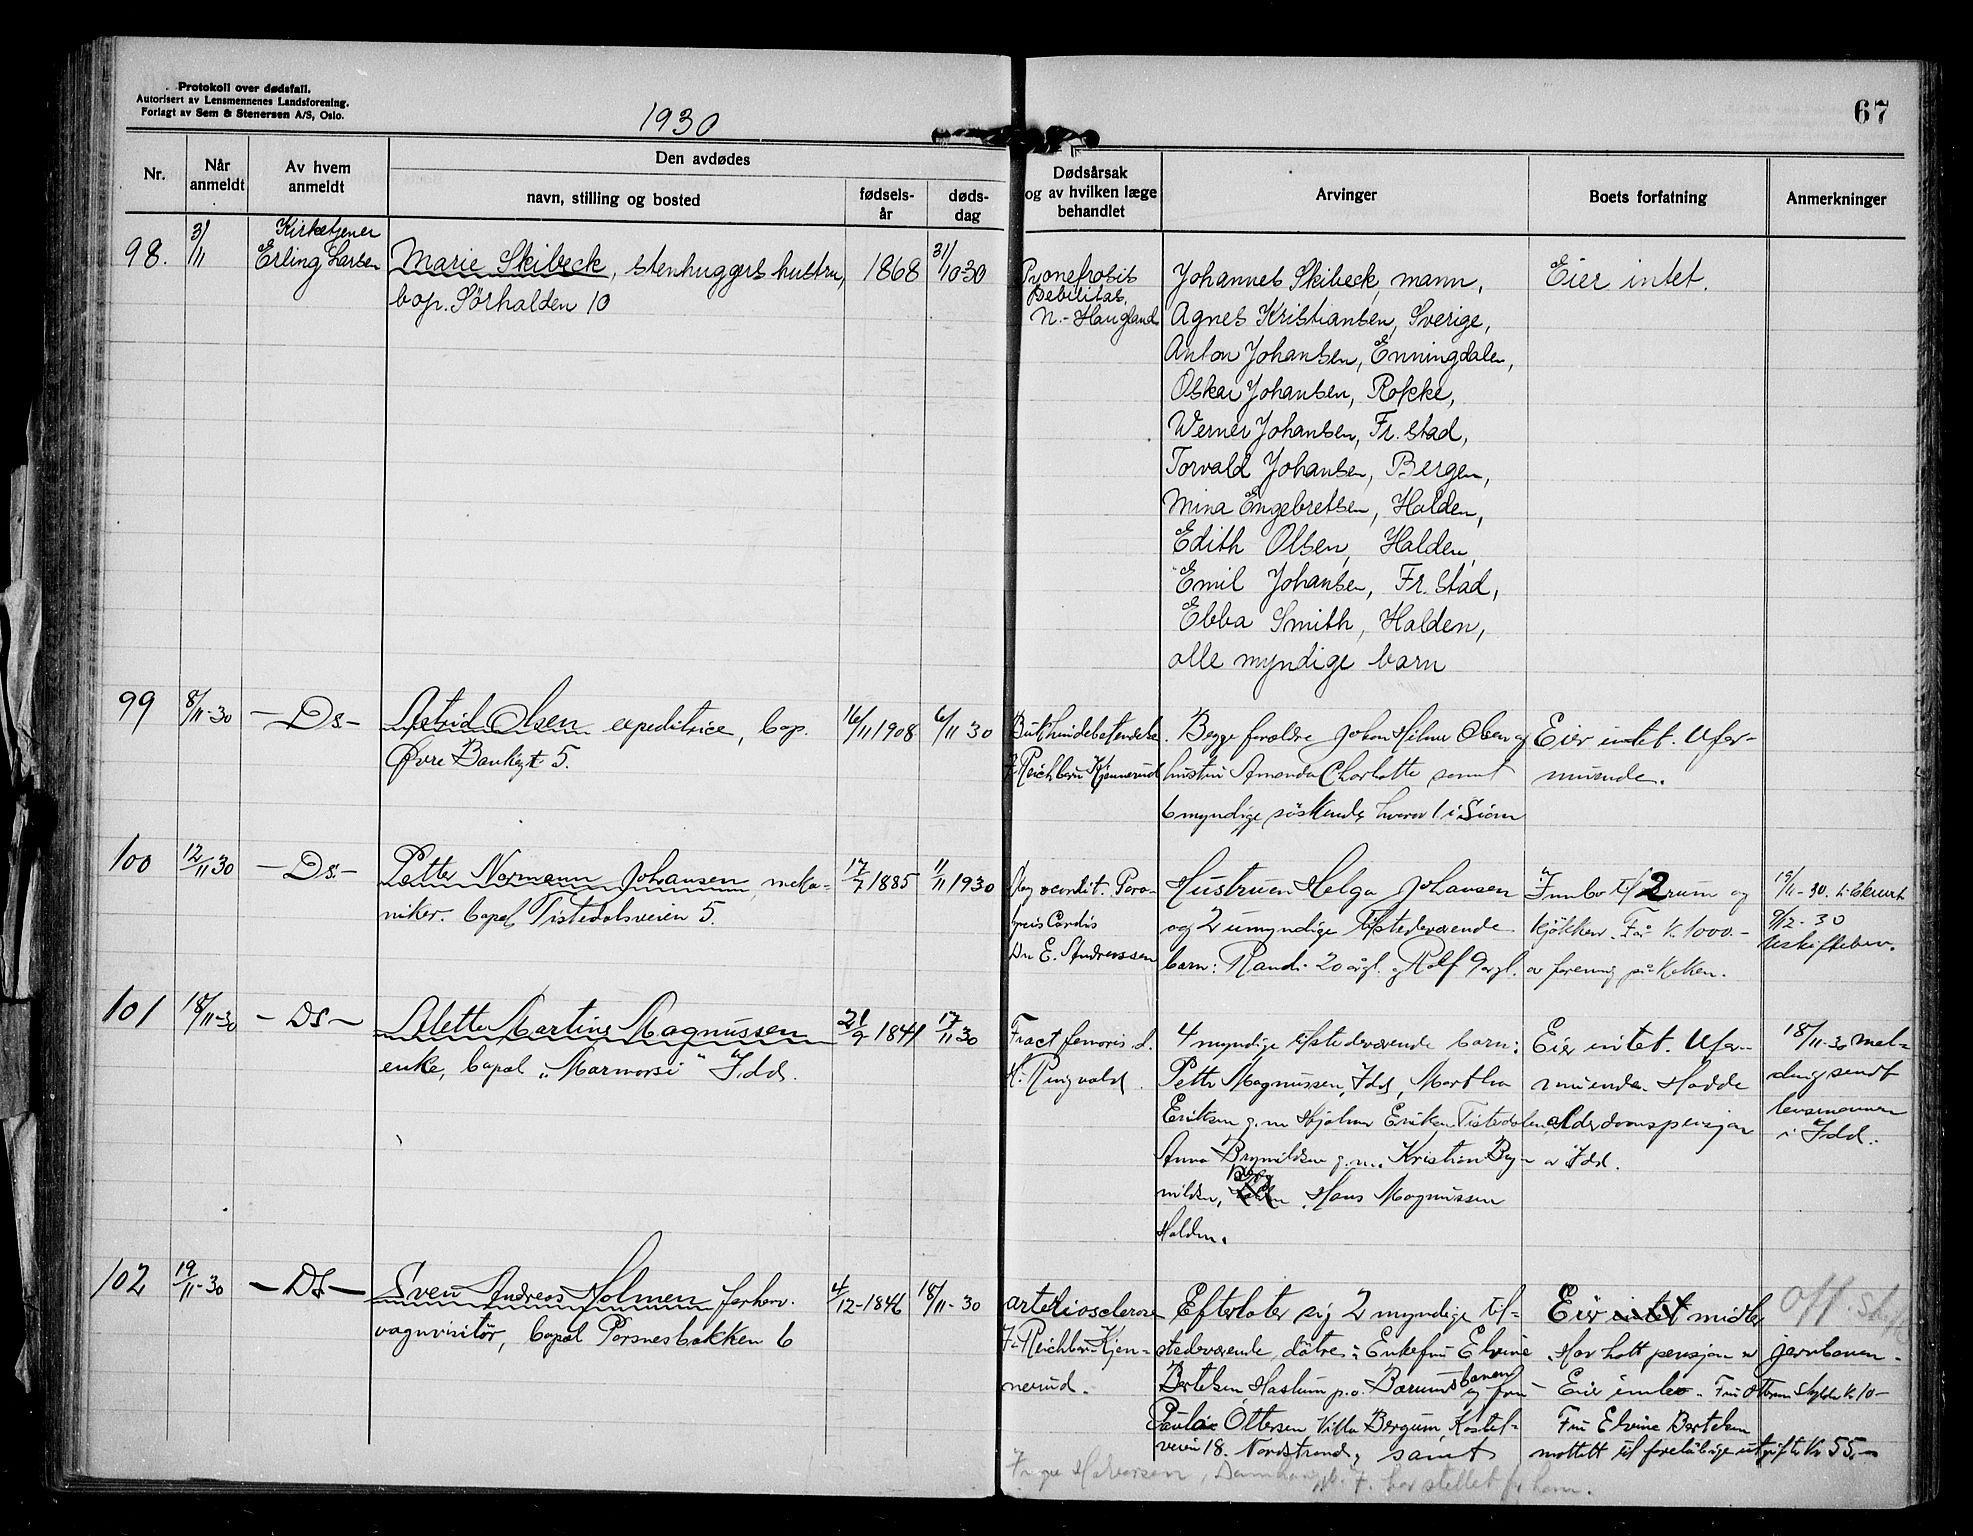 Protokoll over dødsfall.
Autorisert av Lensmennenes Landsforening.
Forlagt av Sem & Stenersen A/S, Oslo.
1930
67
Nr.
Når anmeldt
Av hvem anmeldt
Den avdødes
navn, stilling og bosted
fødsels-år
døds-dag
Dødsårsak
og av hvilken læge
behandlet
Arvinger
Boets forfatning
Anmerkninger
98.
3/11
Kirketjener
Erling Larsen
Marie Skibeck, stenhuggers hustru,
bop. Sørhalden 10
1868
31/10-30
Pyonefrosis
Debilitas.
N.- Haugland
Johannes Skibeck, mann,
Agnes Kristiansen, Sverige,
Anton Johansen, Enningdalen,
Oskar Johansen, Rokke,
Werner Johansen, Fr.stad,
Torvald Johansen, Bergen,
Mina Engebretsen, Halden,
Edith Olsen, Halden
Emil Johansen, Fr.stad,
Ebba Smith, Halden,
alle myndige barn
Eier intet.
99
8/11-30
- Ds -
Astrid Olsen expeditrice, bop.
Øvre Bankgt 5.
16/11 1908
6/11 30
Bukhindebetendelse
Reichborn Kjennerud
Begge foreldre Johan Hilmer Olsen og
hustru Amanda Charlotte samt
6 myndige søskende hvorav 1 i Siam
Eier intet. Ufor-
muende.
100
12/11 30
- Ds. -
Petter Normann Johansen, meka-
niker. bopæl Tistedalsveien 5.
17/7 1885
11/11 1930
Para-
lysis Cordis
Dr E. Andreassen
Hustruen Helga Johansen
og 2 umyndige tilstedeværende
barn: Randi 20 årgl. og Rolf 9 årgl.
Innbo til 2 rum og
kjøkken. Får k. 1000.-
av forening på
19/11-30. t. Skiurt
9/12-30
Uskiftebev.
101
18/11-30
- Ds -
Alette Martine Magnussen
enke, bopæl "Marmorsi" Idd.
21/9 1841
17/11 30
Fract femoris d.
H. Ringvald.
4 myndige tilstedeværende barn:
Petter Magnussen, Idd, Martha
Eriksen g.m Hjalmar Eriksen Tistedalen,
Anna Brynildsen g.m. Kristian Bry-
nildsen, Berg, Hans Magnussen
Halden.
Eier intet. Ufor-
muende. Hadde
alderdomspensjon
av Idd.
18/11-30 Mel-
ding sendt
lensmannen
i Idd.
102
19/11-30
- Ds -
Sven Andreas Holmen forhenv.
vognvisitør, bopæl Porsnesbakken 6
4/12-1846
18/11-30
arteriosclerose
F. Reichborn Kjen-
nerud.
Efterlater sig 2 myndige til-
stedeværende døtre: Enkefru Elvine
Bertelsen Haslum p.o. Bærumsbanen og fru
Paula Ottersen Villa Bergum, Kastel-
veien 18. Nordstrand, samt
Eier intet midler
Har hatt pensjon av jernbanen.
Eier innbo. Fru Ottersen skylder k. 10-
Fru Elvine Bertelsen
mottatt til foreløbige utgifter Kr 55.-
Off. skifte
Halvorsen, 7. har stellet for ham.